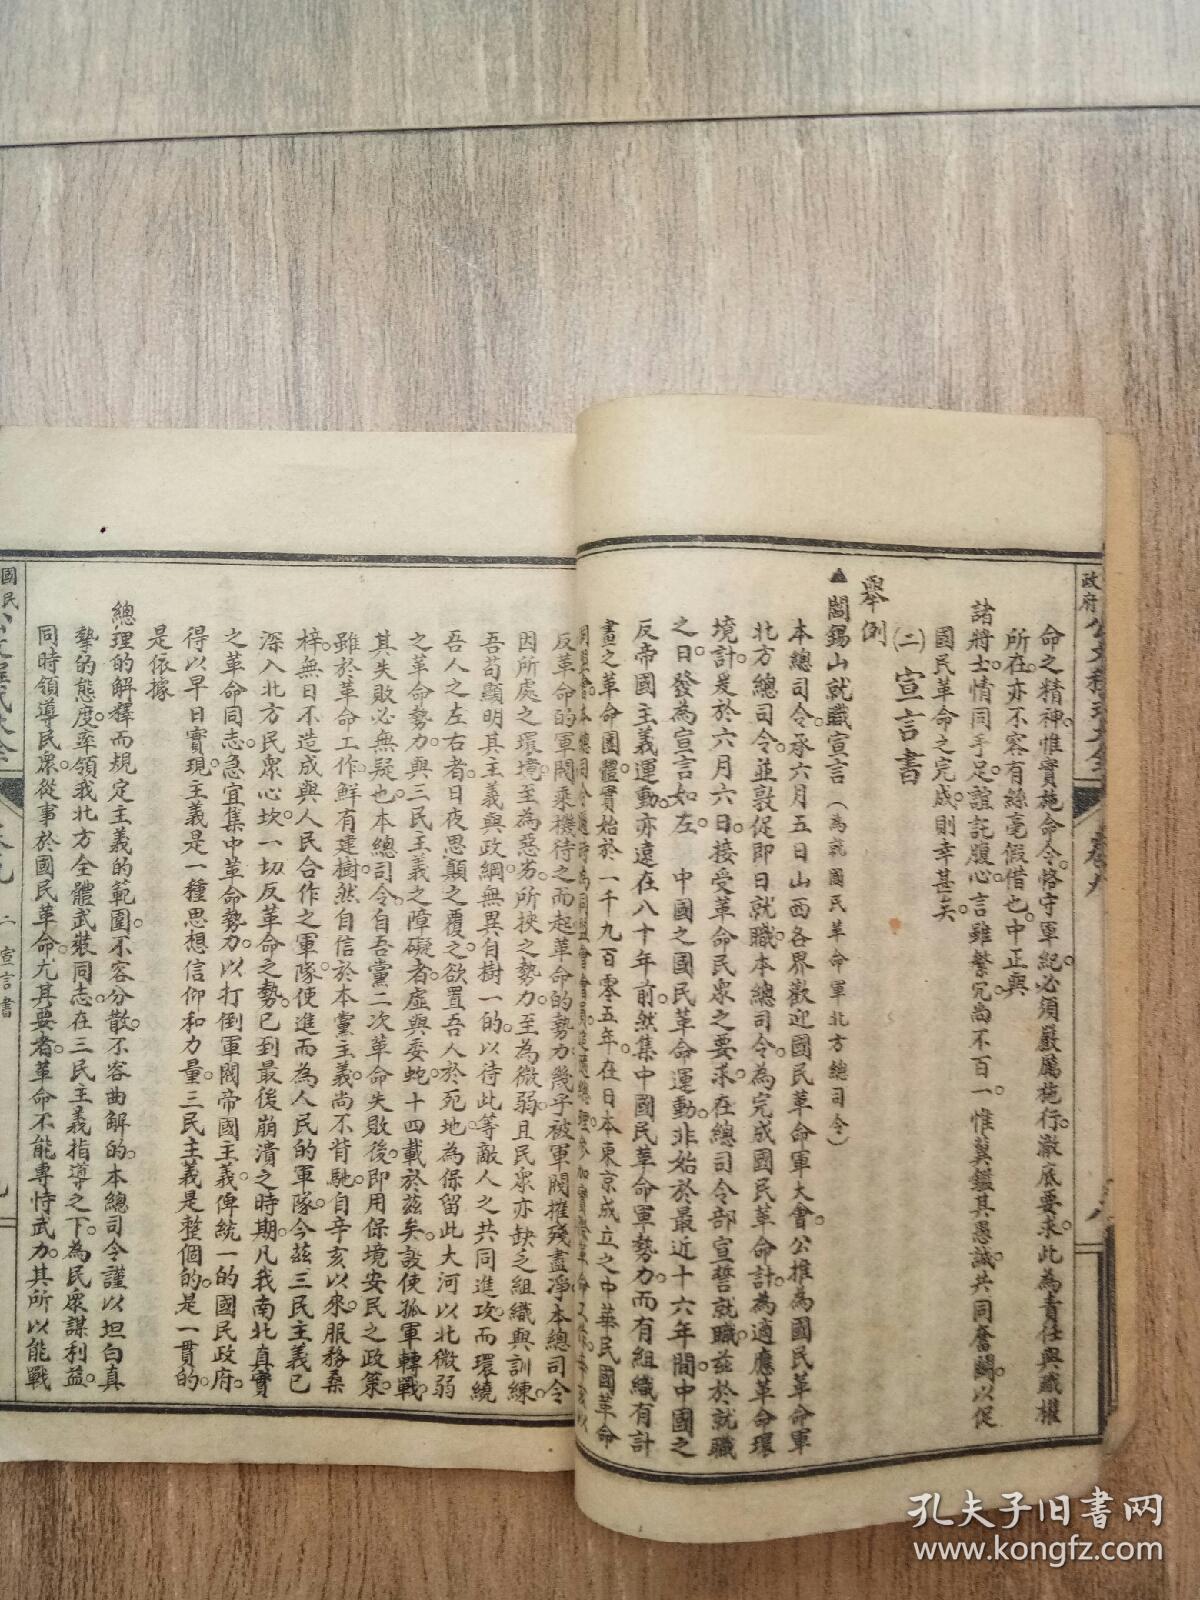 政府
命之精神。惟實施命令。恪守軍紀。必須嚴厲施行。澈底要求。此為責任與職權
所在。亦不容有絲毫假借也。中正與
諸將士情同手足。誼託腹心。言雖繁冗。尚不百一。惟冀鑑其愚誠。共同奮鬭。以促
國民革命之完成。則幸甚矣。
(二)宣言書
舉例
▲閻錫山就職宣言(為就國民革命軍北方總司令)
本總司令。承六月五日山西各界歡迎國民革命軍大會。公推為國民革命軍
北方總司令。並敦促即日就職。本總司令。為完成國民革命計。為適應革命環
境計。爰於六月六日。接受革命民衆之要求。在總司令部宣誓就職。茲於就職
之日。發為宣言如左。 中國之國民革命運動。非始於最近十六年間。中國之
反帝國主義運動。亦遠在八十年前。然集中國民革命軍勢力。而有組織有計
畫之革命團體。實始於一千九百零五年。在日本東京成立之中華民國革命
反革命的軍閥。乘機待之而起。革命的勢力。幾乎被軍閥摧殘盡凈。本總司令
因所處之環境。至為惡劣。所挾之勢力。至為微弱。且民衆亦缺乏組織與訓練。
吾苟顯明其主義與政綱。無異自樹一的。以待此等敵人之共同進攻。而環繞
吾人之左右者。日夜思顛之覆之。欲置吾人於死地。為保留此大河以北微弱
之革命勢力。與三民主義之障礙者。虛與委蛇。十四載於茲矣。設使孤軍轉戰。
其失敗必無疑也。本總司令。自吾黨二次革命失敗後。即用保境安民之政策。
雖於革命工作。鮮有建樹。然自信於本黨主義。尚不背馳。自辛亥以來。服務桑
梓。無日不造成與人民合作之軍隊。使進而為人民的軍隊。今茲三民主義已
深入北方民衆心坎。一切反革命之勢。已到最後崩潰之時期。凡我南北真實
之革命同志。急宜集中革命勢力。以打倒軍閥帝國主義。俾統一的國民政府。
得以早日實現。主義是一種思想信仰和力量。三民主義是整個的。是一貫的。
是依據
總理的解釋。而規定主義的範圍。不容分散。不容曲解的。本總司令。謹以坦白真
摯的態度。率領我北方全體武裝同志。在三民主義指導之下。為民衆謀利益。
同時領導民衆。從事於國民革命。尤其要者。革命不能專恃武力。其所以能戰
國民
二 宣言書
孔夫子旧書网
www.kongfz.com